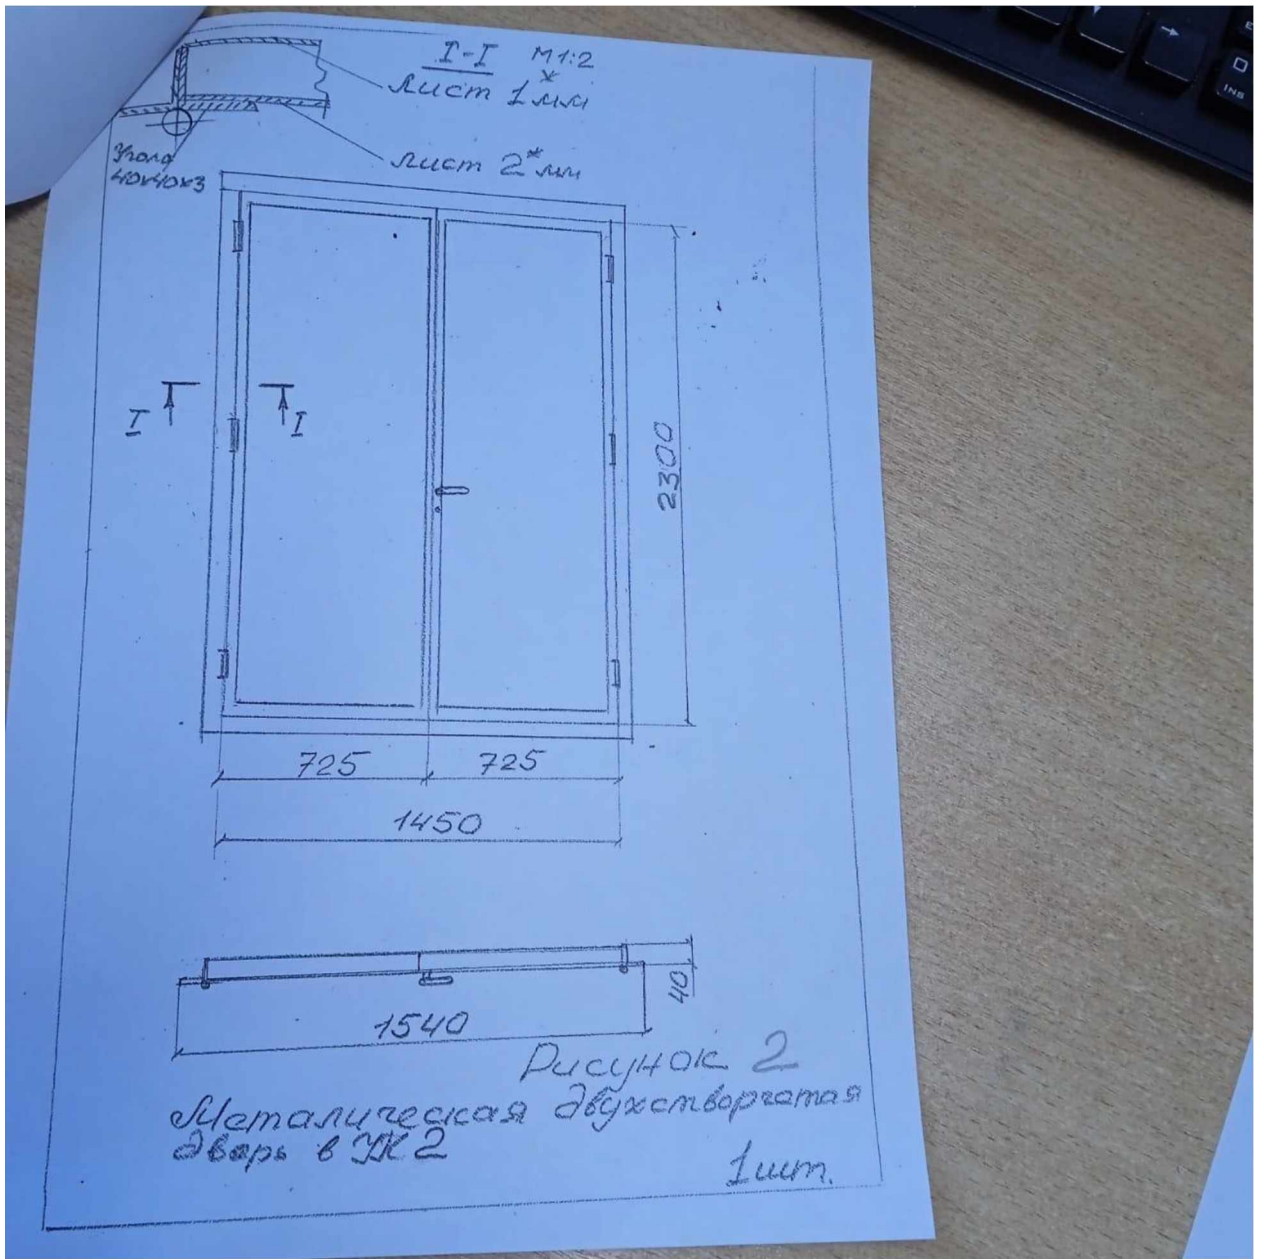 I-I М1:2
лист 1*мм
лист 2*мм
Уголд
40х40х3
I
I
2300
725
725
1450
40
1540
Рисунок 2
Металическая двухстворчатая
дверь в УК2
1шт.
INS